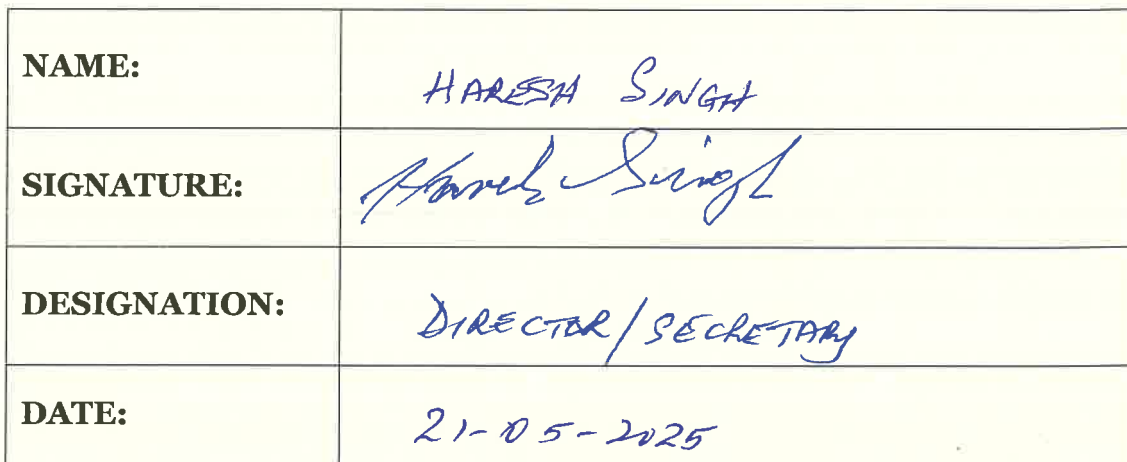 NAME: HARESH SINGH
SIGNATURE: Haresh Singh
DESIGNATION: DIRECTOR/SECRETARY
DATE: 21-05-2025